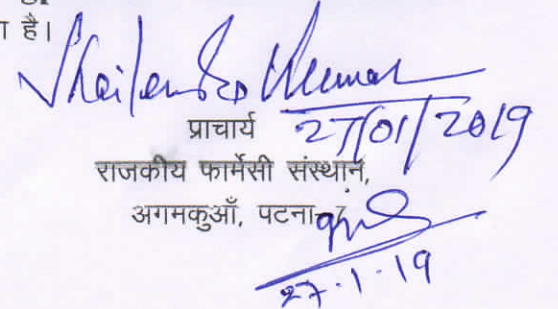 है।
Shailendra Kumar
प्राचार्य 27/01/2019
राजकीय फार्मेसी संस्थान,
अगमकुआँ, पटना-7
27.1.19